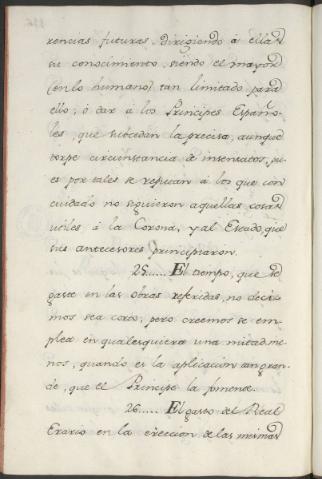 rencias futuras, dirigiendo á ellas
su conocimiento, siendo el mayor
(en lo humano) tan limitado para
ello, ó dar á los Principes Españo-
les, que subcedan la precisa, aunque
torpe circunstancia de insensatos, pu-
es por tales se reputan á los que con
cuidado no siguieron aquellas cosas
utiles á la Corona, y al Estado, que
sus antecesores principiaron.
25..... El tiempo, que se
gaste en las obras referidas, no deci-
mos sea corto, pero creemos se em-
plea en qualesquiera una mitad me-
nos, quando es la aplicacion tan gran-
de, que el Principe la fomente.
26..... El gasto del Real
Erario en la ereccion de las mismas